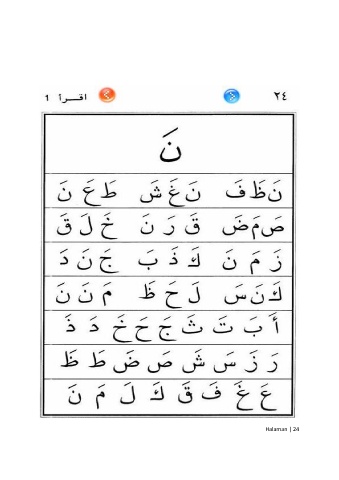 ٢٤ اقرأ ١
نَ
نَ ظَ فَ نَ غَ شَ طَ عَ نَ
صَ مَ ضَ قَ رَ نَ خَ لَ قَ
زَ مَ نَ كَ ذَ بَ جَ نَ دَ
كَ نَ سَ لَ حَ ظَ مَ نَ نَ
أَ بَ تَ ثَ جَ حَ خَ دَ ذَ
رَ زَ سَ شَ صَ ضَ طَ ظَ
عَ غَ فَ قَ كَ لَ مَ نَ
Halaman | 24